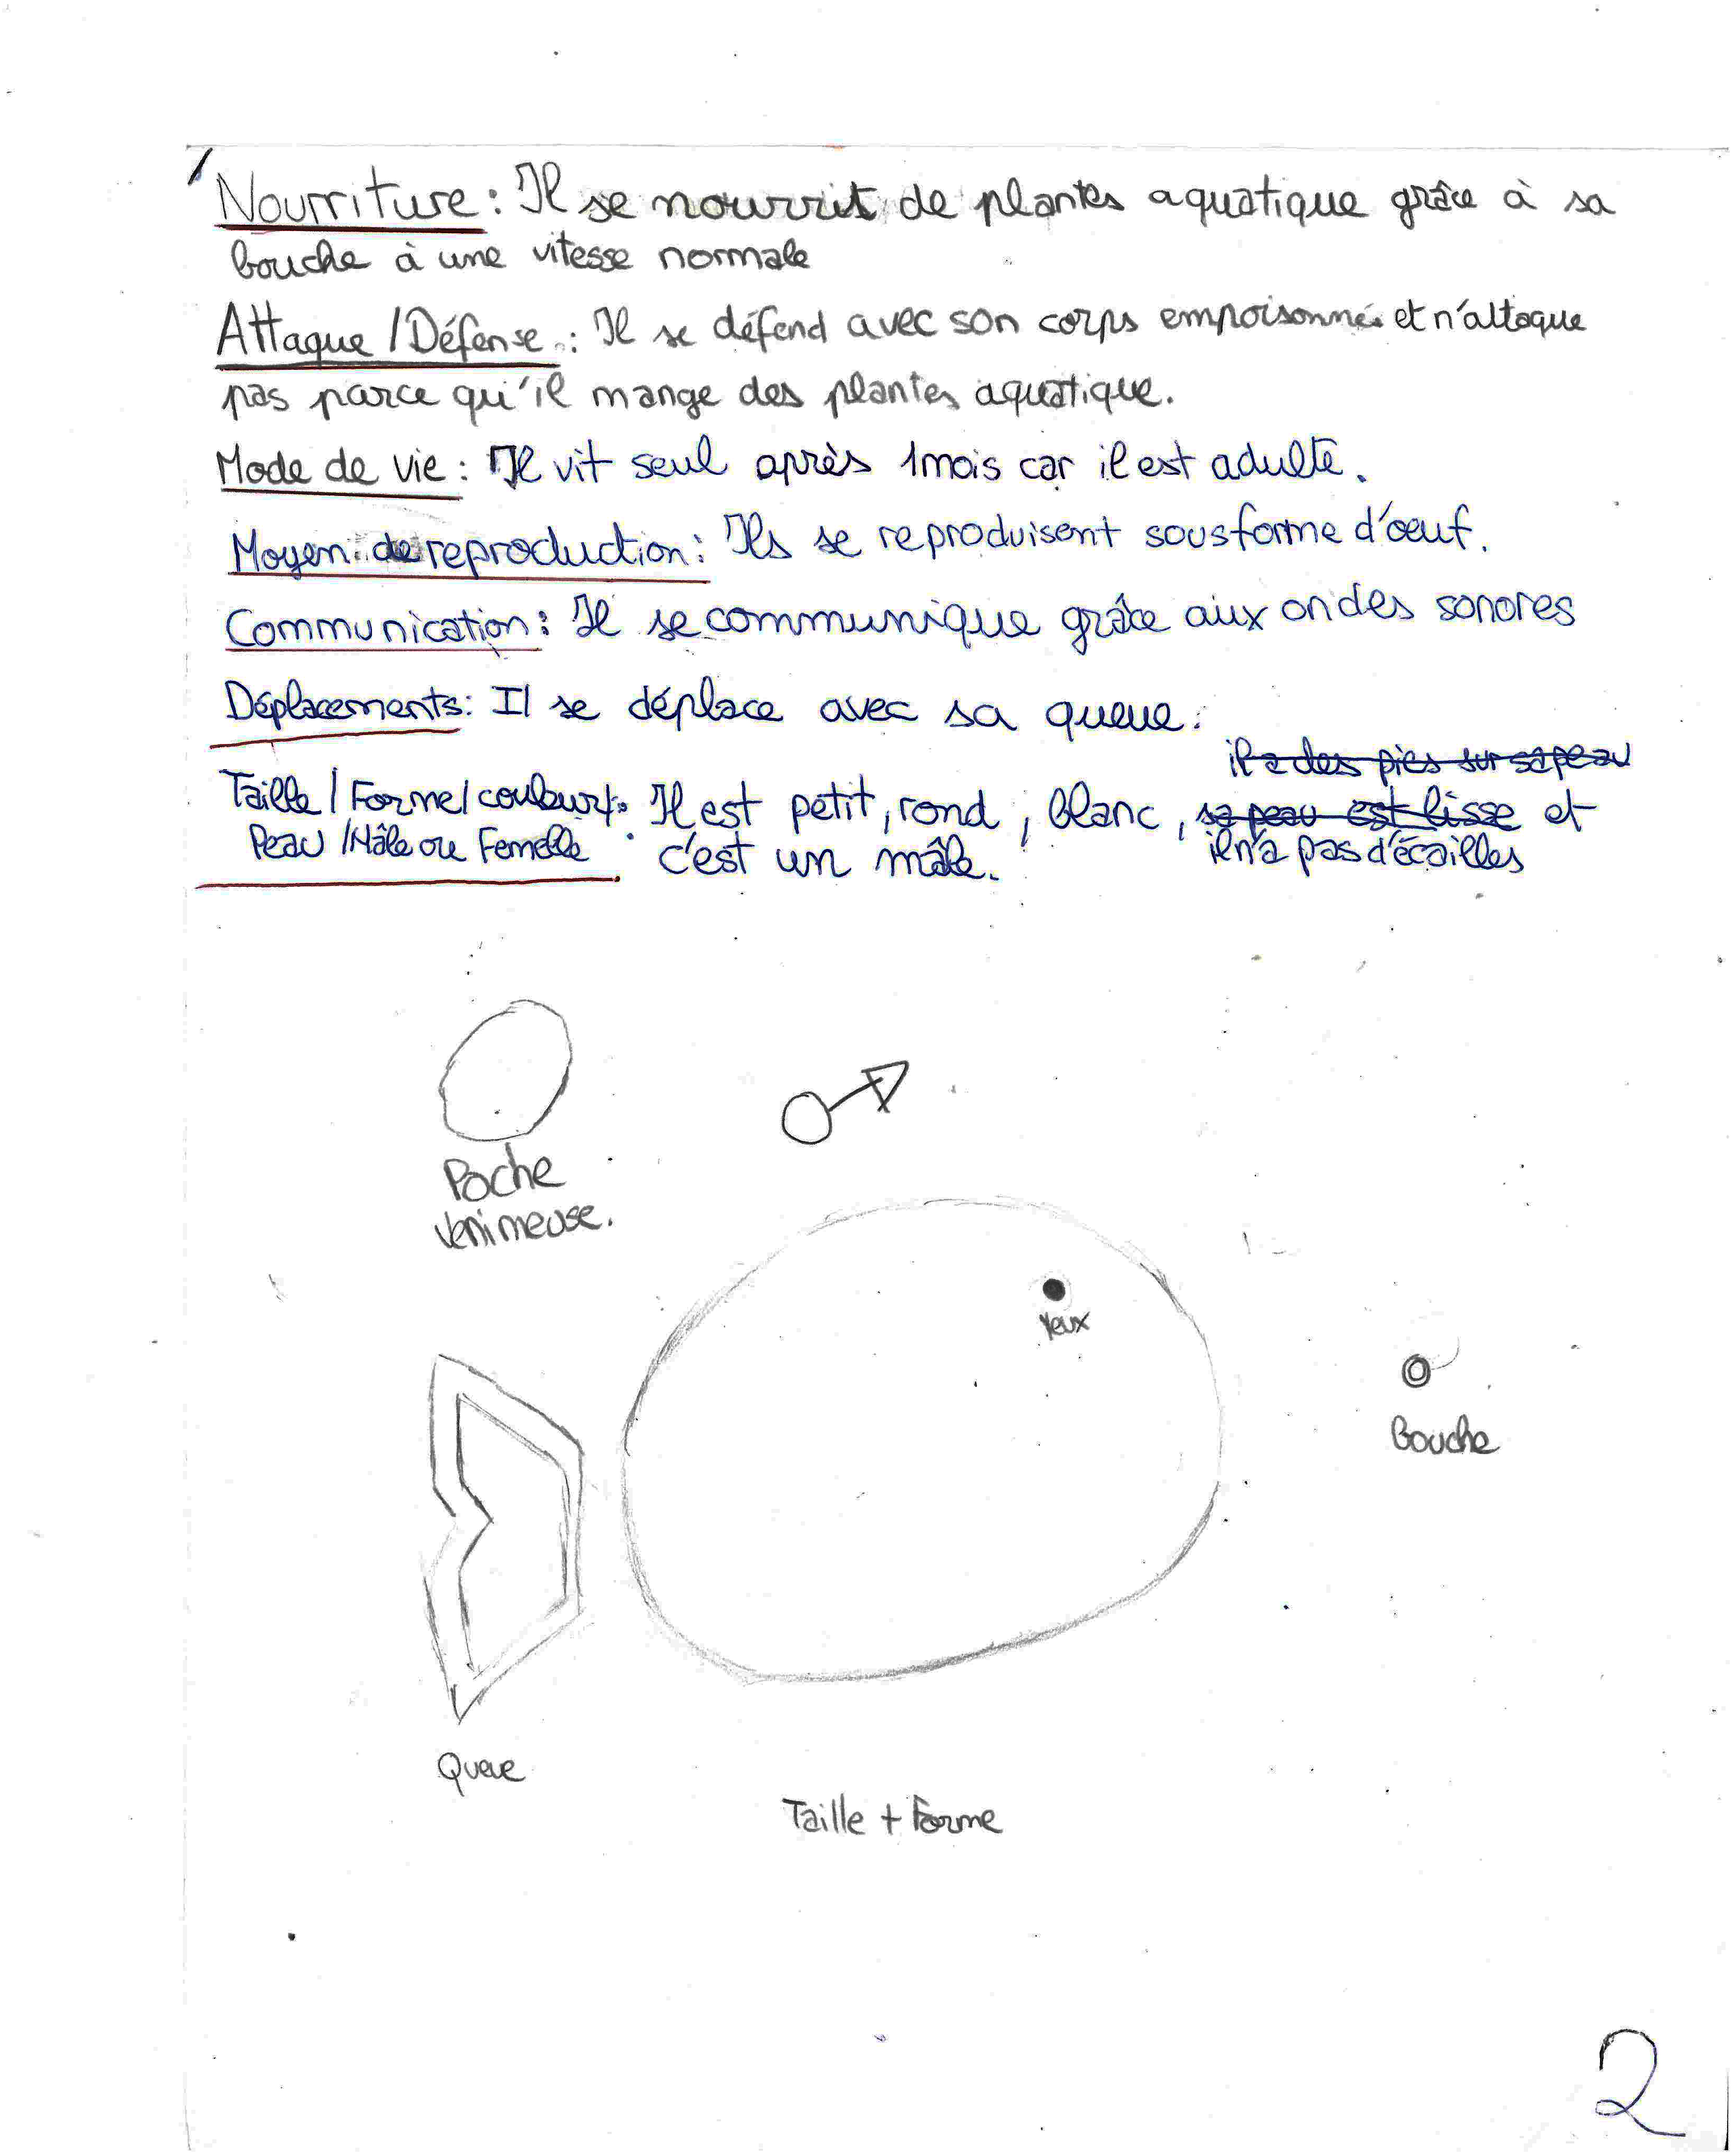 Nourriture : Il se nourrit de plantes aquatique grâce à sa
bouche à une vitesse normale
Attaque / Défense : Il se défend avec son corps empoisonné et n'attaque
pas parce qu'il mange des plantes aquatique.
Mode de vie : Il vit seul après 1 mois car il est adulte.
Moyen de reproduction : Ils se reproduisent sous forme d'œuf.
Communication : Il se communique grâce aux ondes sonores
Déplacements : Il se déplace avec sa queue.
il a des pics sur sa peau
Taille / Forme / couleur / : Il est petit, rond, blanc, sa peau est lisse et
Peau / Mâle ou Femelle : c'est un mâle. il n'a pas d'écailles
Poche
venimeuse.
Yeux
Bouche
Queue
Taille + Forme
2